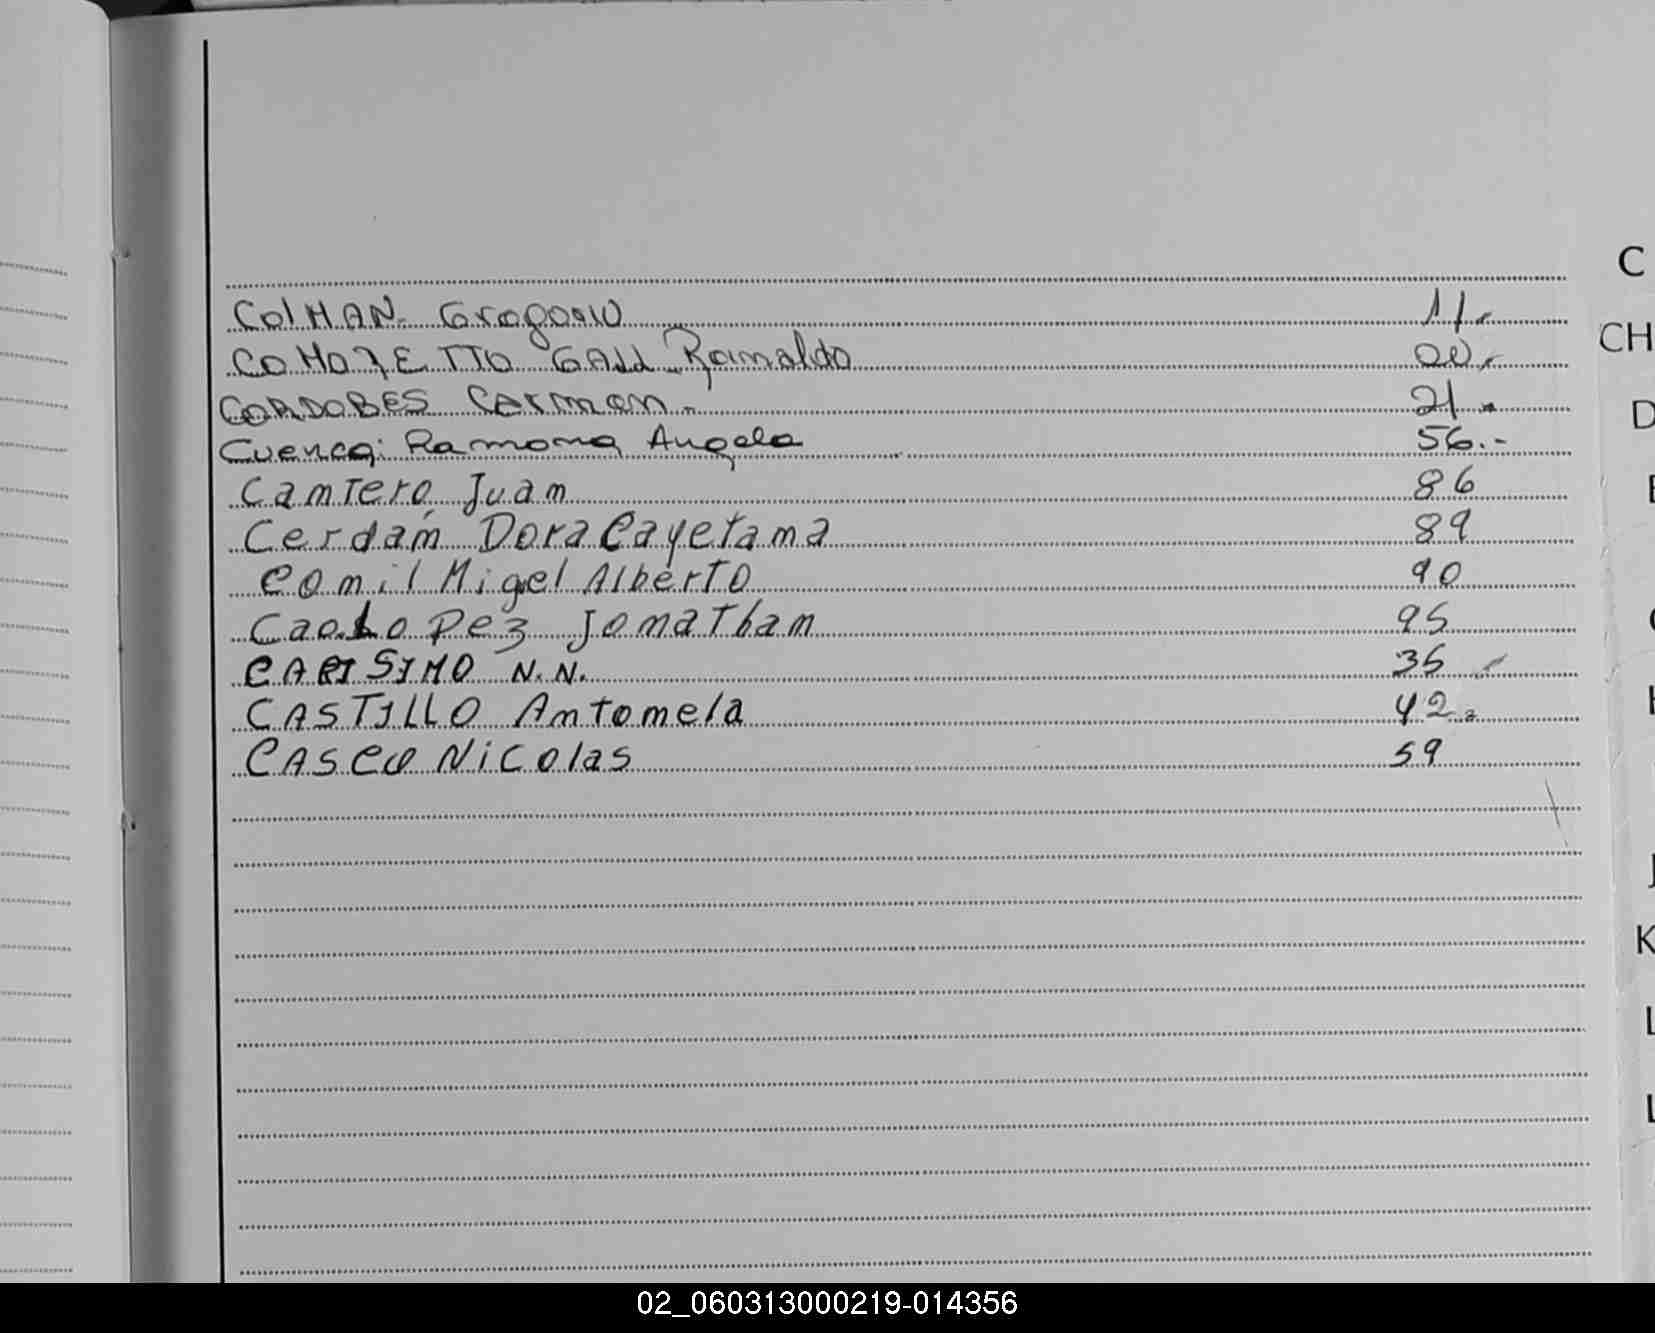 C
COlMAN Gregorio 11.-
CH
COMOZETTO GAll Reinaldo 20.-
CORDOBES Carmen. 21.-
D
Cuenca: Ramona Angela 56.-
Cantero, Juan 86
Cerdán Dora Cayetana 89
Comil Migel Alberto 90
Cao Lopez Jonathan 95
CARISIMO N.N. 35
CASTILLO Antonela 42.
CASCO Nicolas 59
K
02_060313000219-014356